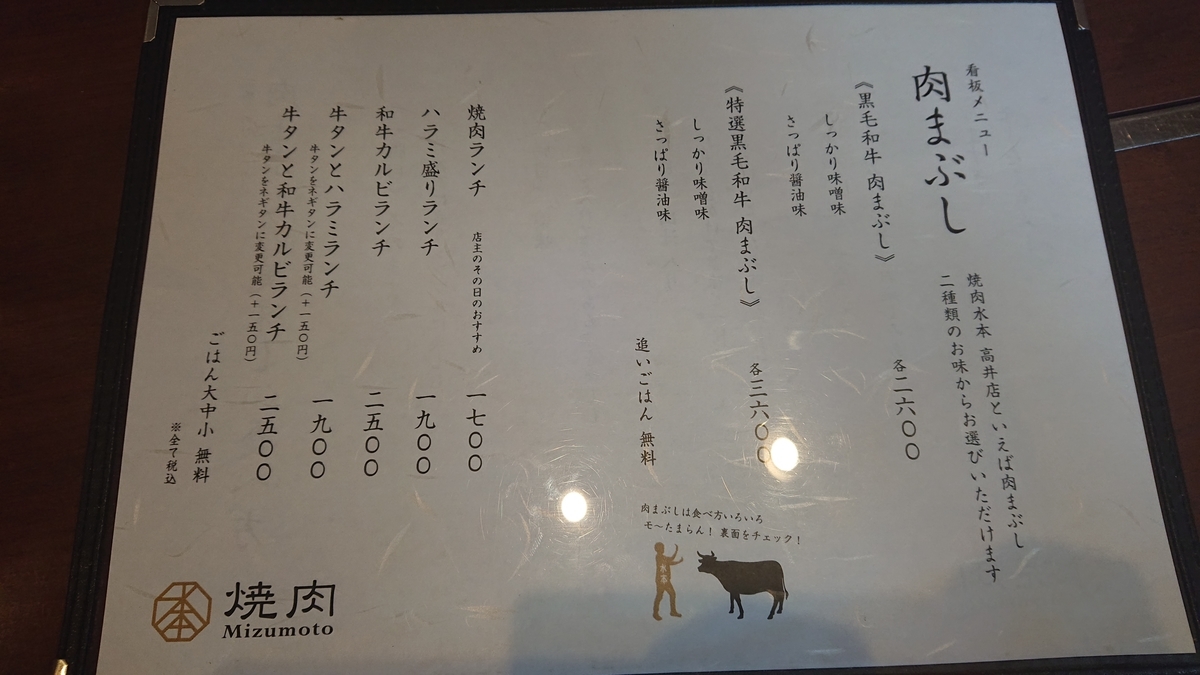 看板メニュー
肉まぶし
焼肉水本 高井店といえば肉まぶし
二種類のお味からお選びいただけます
《黒毛和牛 肉まぶし》
しっかり味噌味
さっぱり醤油味
各二六〇〇
《特選黒毛和牛 肉まぶし》
しっかり味噌味
さっぱり醤油味
各三六〇〇
追いごはん 無料
肉まぶしは食べ方いろいろ
モ〜たまらん！裏面をチェック！
水本
焼肉ランチ 店主のその日のおすすめ 一七〇〇
ハラミ盛りランチ 一九〇〇
和牛カルビランチ 二五〇〇
牛タンとハラミランチ 一九〇〇
牛タンをネギタンに変更可能（＋一五〇円）
牛タンと和牛カルビランチ 二五〇〇
牛タンをネギタンに変更可能（＋一五〇円）
ごはん大中小 無料
※全て税込
焼肉
Mizumoto